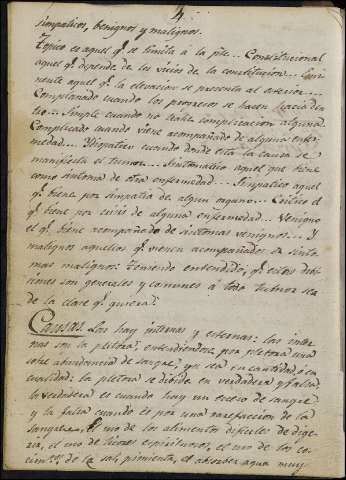 4.
simpaticos, benignos y malignos.
Topico es aquel q.e se limita á la pte... Constitucional
aquel q.e depende de los vicios de la constitucion... Emi-
nente aquel q.e la elevacion se presenta al exterior...
Complanado cuando los progresos se hacen hacia den-
tro... Simple cuando no habla complicacion alguna
Complicado cuando viene acompañado de alguna enfer-
medad... Ydiopatico cuando donde está la causa se
manifiesta el tumor... Sintomatico aquel que viene
como sintoma de otra enfermedad... Simpatico aquel
q.e biene por simpatia de algun organo... Critico el
q.e biene por crisis de alguna enfermedad... Venigno
el q.e biene acompañado de sintomas venignos... Y
malignos aquellos q.e vienen acompañados de sinto-
mas malignos: Teniendo entendido, q.e estas divi-
ciones son generales y comunes á todo tumor sea
de la clase q.e quiera.
Causas. Las hay internas y externas: las inter-
nas son la pletora, entendiendose por pletora una
sobre abundancia de sangre, yá sea en cantidad ó en
cualidad: la pletora se divide en verdadera y falsa,
la verdadera es cuando hay un exceso de sangre
y la falsa cuando es por una rarefaccion de la
sangre. El uso de los alimentos dificiles de dige-
rir, el uso de licores espirituosos, el uso de los
de la sal, pimienta, el absorber agua muy